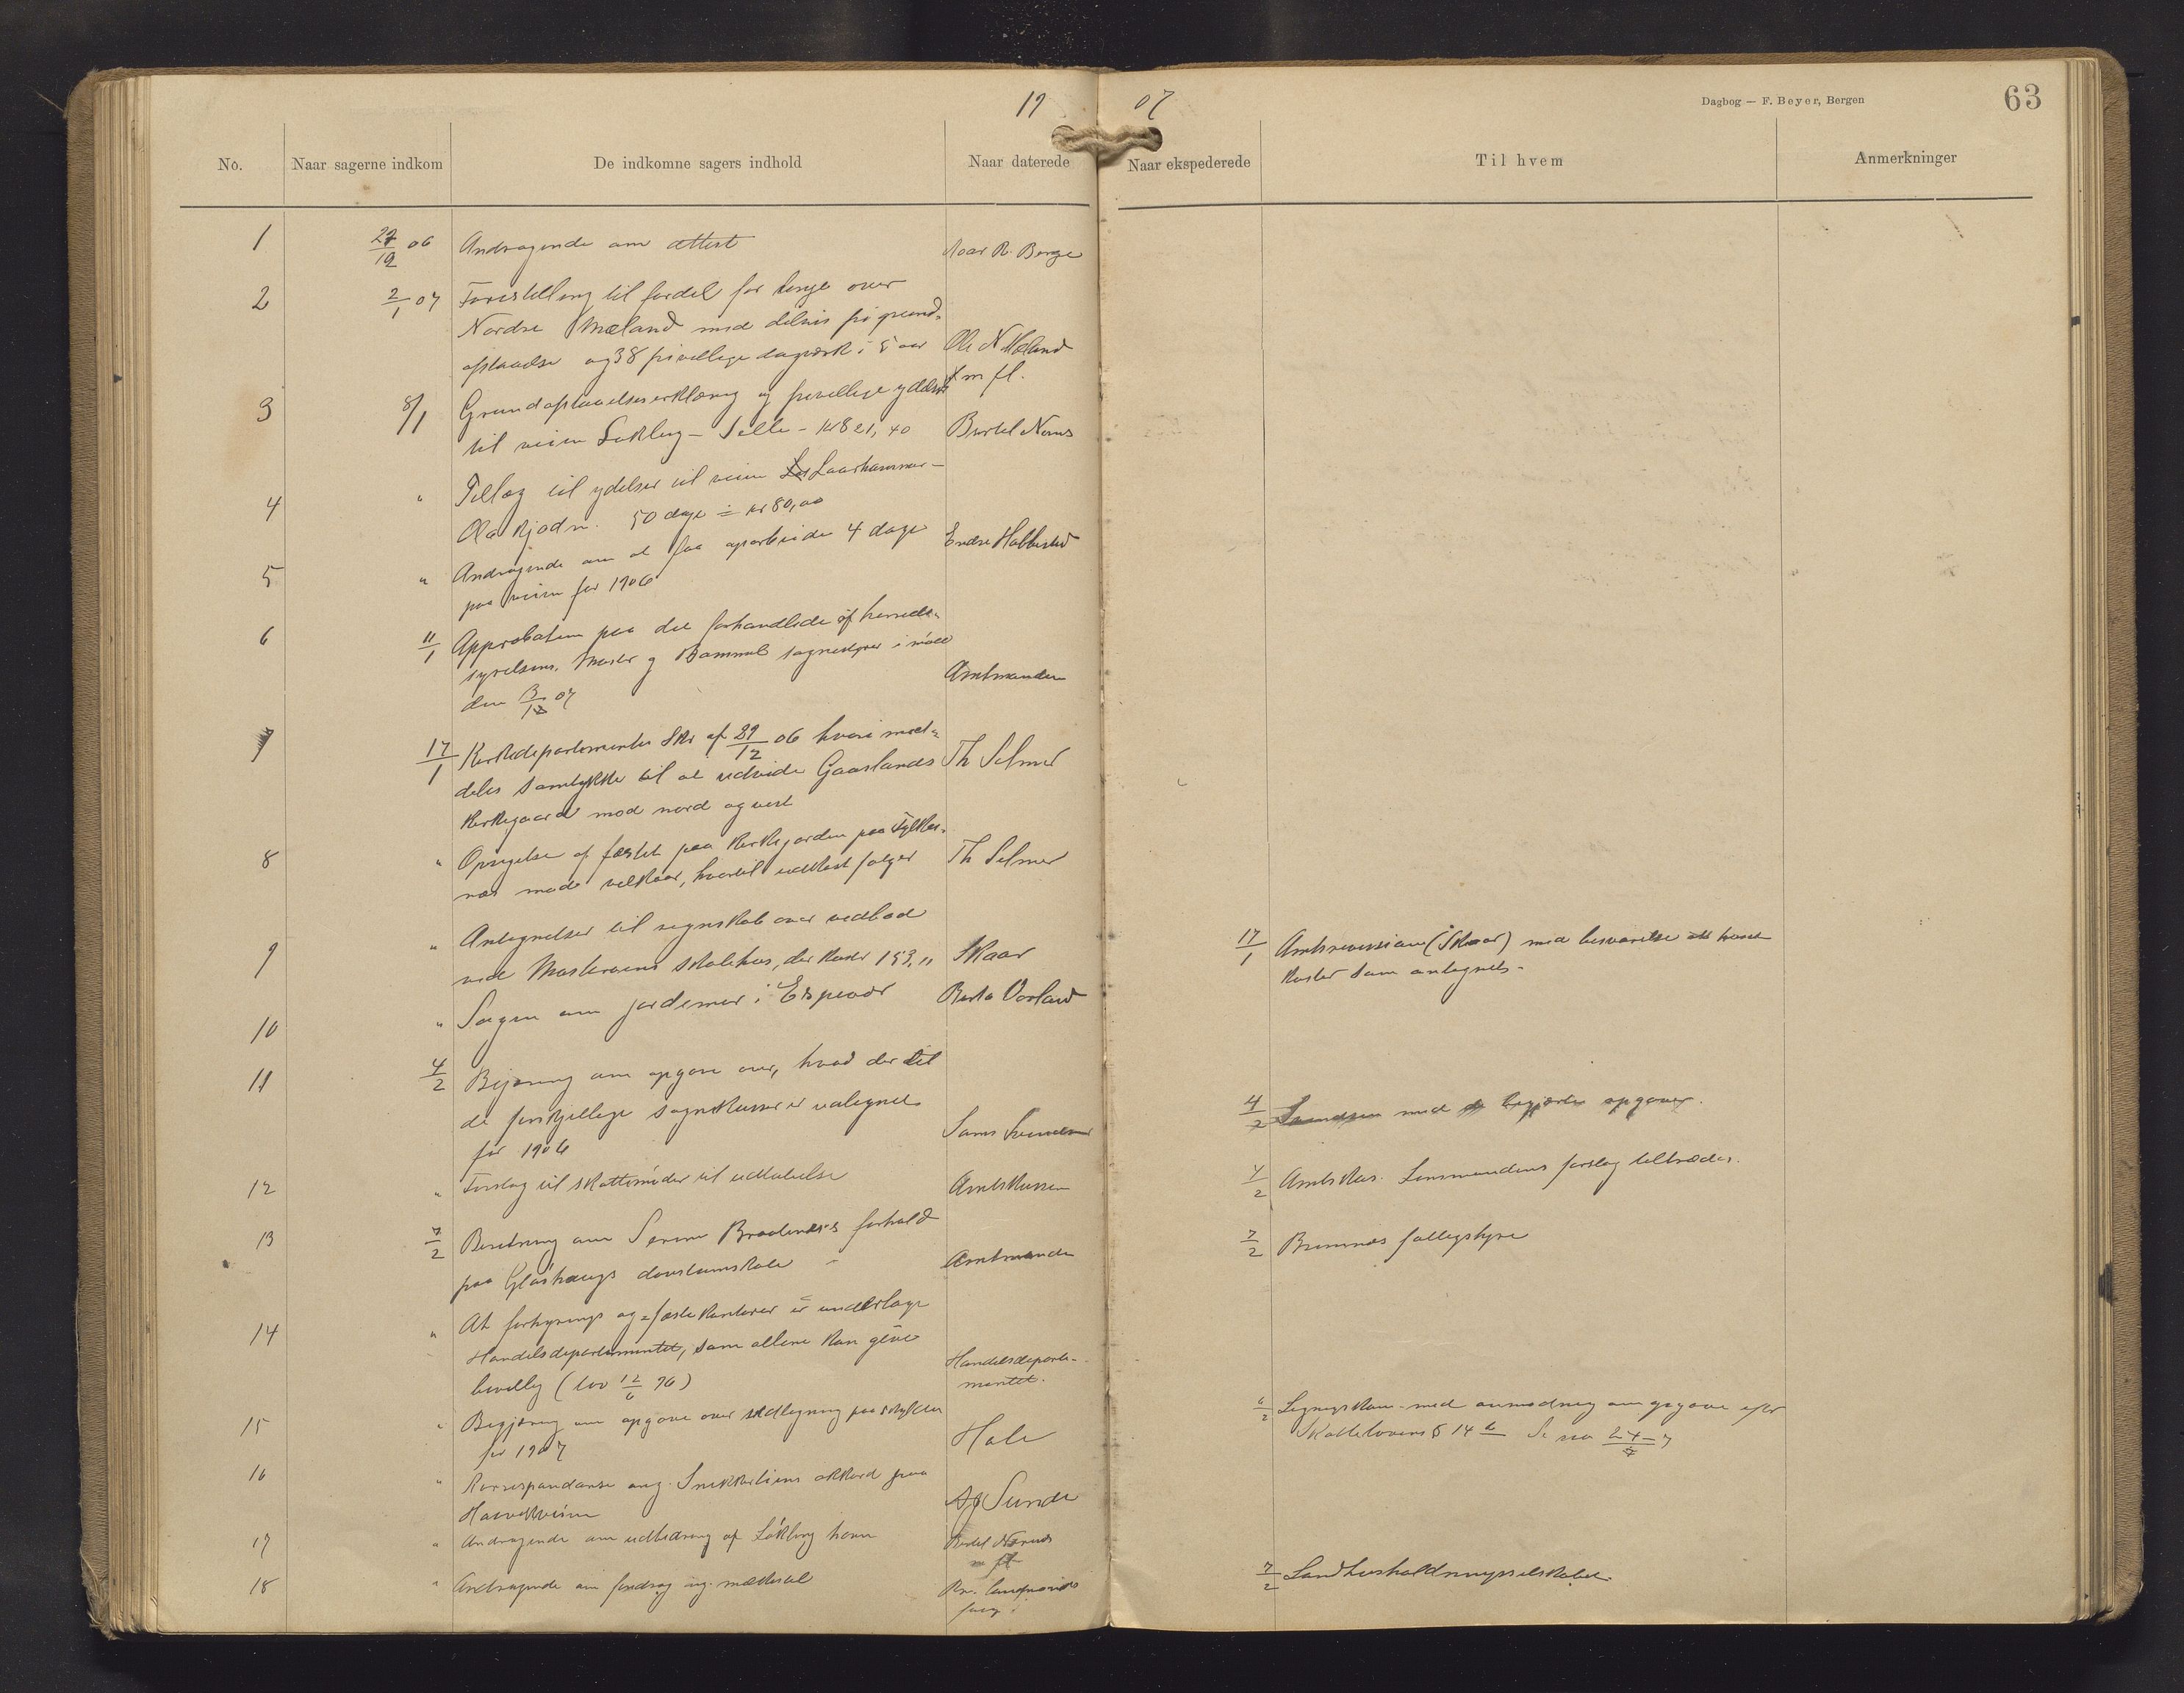 19 07
Dagbog — F. Beyer, Bergen
63
No.
Naar sagerne indkom
De indkomne sagers indhold
Naar daterede
Naar ekspederede
Til hvem
Anmerkninger
1 27/12 06 Andragende om attest R. Berge
2 2/1 07 Forestilling til fordel for over
Nordre Mæland med delvis fri grund-
afstaaelse og 38 frivillige dagverk i 5 aar Ole N Mæland
m fl.
3 8/1 Grundafstaaelseserklæring og frivillige ydelser
til veien Løkling - Selle - kr 821,40 Bertel Næves
4 " Tillæg til ydelser til veien Laarhammer-
Ola kjodn. 50 dage = kr 80,00
5 " Andragende om at faa oparbeide 4 dage Endre Habbestad
paa veien for 1906
6 11/1 Approbation paa det forhandlede af herreds-
styrelsen, Moster og Bømmel sognestyrer i møde
den 07 Amtmanden
7 17/1 Kirkedepartementets Skr af 29/12 06 hvori med-
deles samtykke til at udvide Gaaslands Th Selmer
kirkegaard mod nord og vest
8 " Opsigelse af fæstet paa kirkejorden paa Fylkes-
nes mod vilkaar, hvortil udkast følger Th Selmer
9 " Antegnelser til regnskab over vedbod
ved Mosterøens skolehus, der koster 153,00 Skaar
17/1 Amtsrevisionen (Skaar) med besvarelse
koster som antegnet.
10 " Sagen om jordemor i Espevær Berta Vorland
11 4/2 Begjæring om opgave over, hvad der til
de forskjellige sognekasser er utlignet
for 1906 Lars Svendsen
4/2 Svendsen med begjærte opgaver.
12 " Forslag til skattemøder til udtalelse Amtskassen
4/2 Amtskas. Lensmandens forslag tiltrædes.
13 7/2 Beretning om forhold
paa Gløshaugs døvstumskole Amtmanden
7/2 Bremnes fattigstyre
14 " At forhyrings og fæstekontorer er underlagt
Handelsdepartementet, som allene kan give
bevilling (lov 12/6 96) Handelsdeparte-
mentet.
15 " Begjæring om opgave over utligning paa skylden
for 1907 Hole
6/2 Ligningskom. med anmodning om opgave efter
Skattelovens § 14
16 " Korrespondanse ang. Snekkerliens akkord paa
Sunde
17 " Andragende om udbedring af Løkling havn Bertel Næves
m fl
18 " Andragende om foredrag ang. melkestel
7/2 Landhusholdningsselskabet